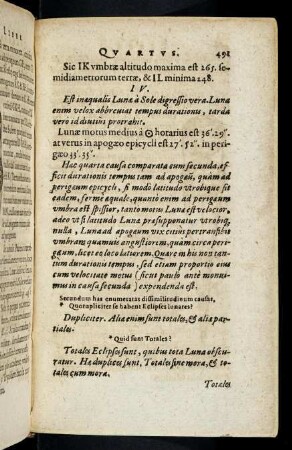 QVARTVS. 491
Sic IK vmbræ altitudo maxima est 265. se-
midiametrorum terræ, & IL minima 248.
IV.
Est inæqualis Lunæ à Sole digressio vera. Luna
enim velox abbreuiat tempus durationis, tarda
vero id diutius protrahit.
Lunæ motus medius à ☉ horarius est 36'.29''.
at verus in apogæo epicycli est 27'.52''. in peri-
gæo 35'.35''.
Hæc quarta causa comparata cum secunda, ef-
ficit durationis tempus tam ad apogæū, quàm ad
perigæum epicycli, si modò latitudo vtrobique sit
eadem, ferme æquale, quanto enim ad perigæum
vmbra est spissior, tanto motus Lunæ est velocior,
adeo vt si latitudo Lunæ præsupponatur vtrobiq́;
nulla, Luna ad apogæum vix citius pertranseat
vmbram quamuis angustiorem, quam circa peri-
gæum, licet eo loco latiorem. Quare in his non tan-
tum durationis tempus, sed etiam proportio eius
cum velocitate motus (sicut paulo ante monui-
mus in causa secunda) expendendu est.
Secundum has enumeratas dissimilitudinum causas,
* Quotupliciter se habent Eclipses Lunares?
Dupliciter. Aliæ enim sunt totales, & aliæ par-
tiales.
* Quid sunt Totales?
Totales Eclipses sunt, quibus tota Luna obscu-
ratur. Hæ duplices sunt, Totales sine mora, & to-
tales cum mora.
Totales